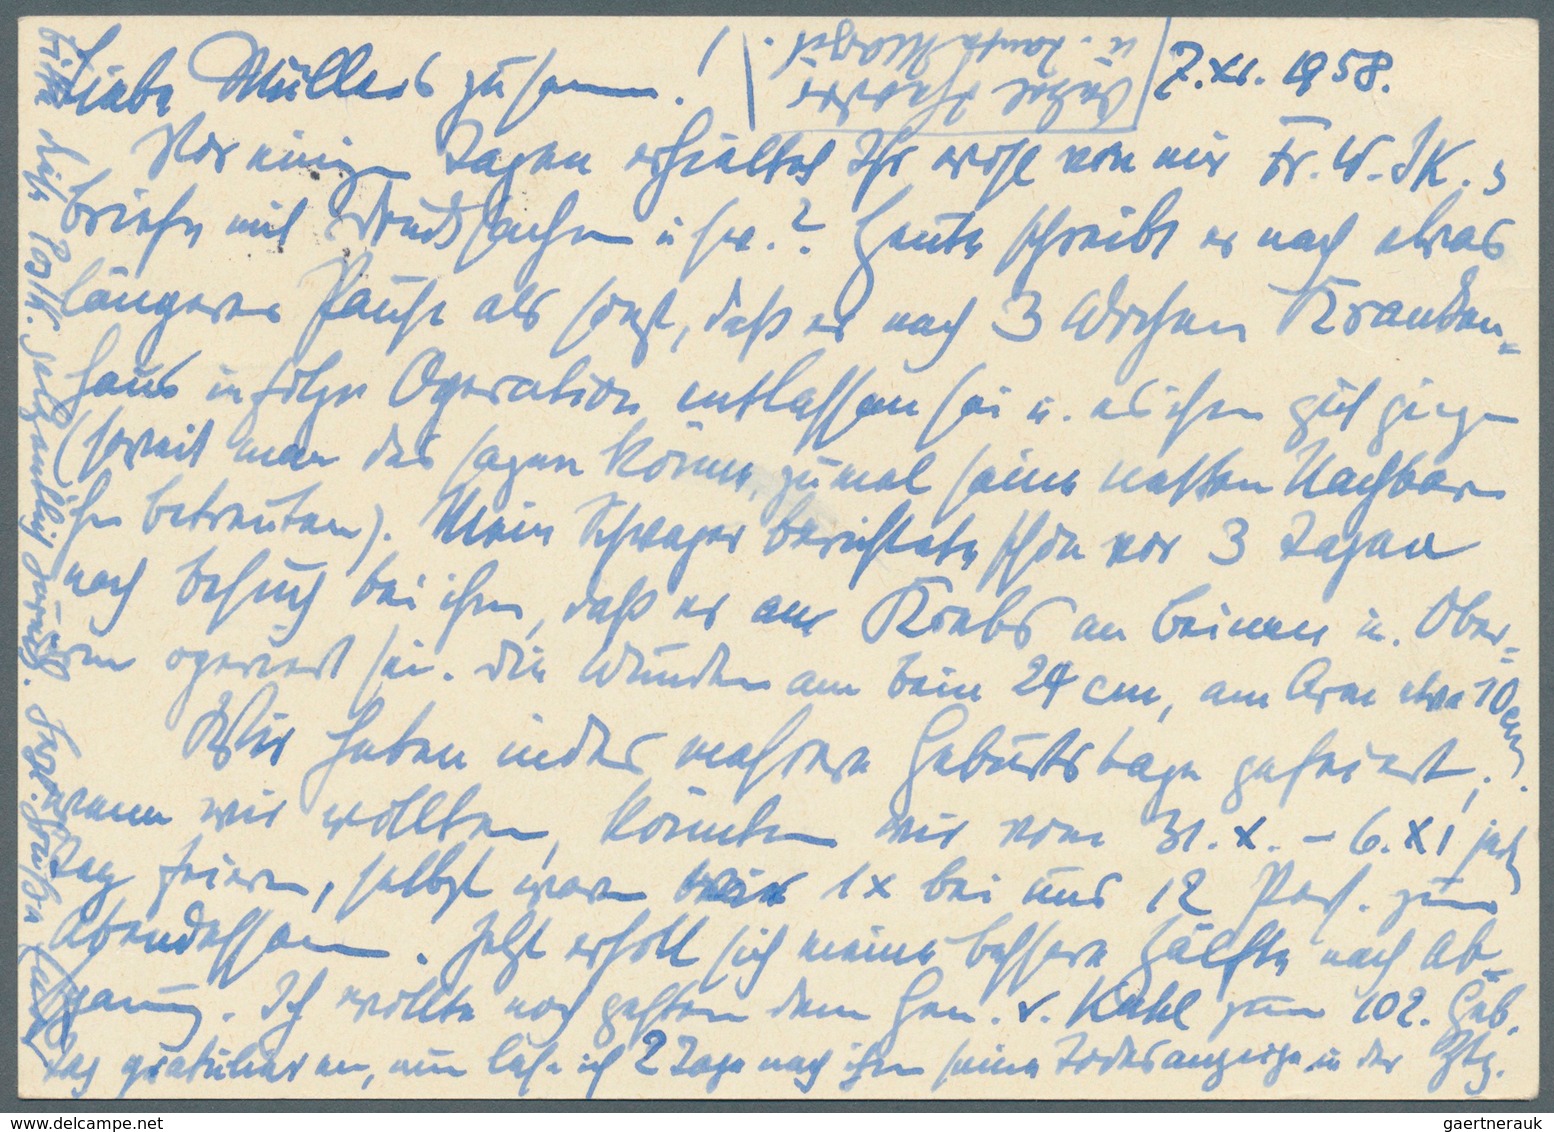 7. XI. 1958.
Liebe Müllers zusammen!
Vor einigen Tagen erhieltet Ihr wohl von mir Fr. W. JK.s
Briefe mit Drucksachen usw.? Heute schreibt er nach etwas
längerer Pause als sonst, daß er nach 3 Wochen Kranken=
haus infolge Operation entlassen sei u. es ihm gut ginge
(soweit man das sagen könne, zumal seine netten Nachbarn
ihn betreuten). Mein Schwager berichtete schon vor 3 Tagen
nach Besuch bei ihm, daß er an Krebs an Beinen u. Ober=
arm operiert sei. Die Wunden am Bein 24 cm, am Arm etwa 10 cm.
Wir haben indes mehrere Geburtstage gefeiert;
wenn wir wollten, könnten wir vom 31. X. – 6. XI jeden
Tag feiern, selbst waren wir 1x bei uns 12 Pers. zum
Abendessen. Jetzt erholt sich meine bessere Hälfte nach Ab=
gang. Ich wollte noch gestern dem Gen. v. Kuhl zum 102. Geb.
tag gratulieren, nun lese ich 2 Tage nach ihm seine Todesanzeige in der Ztg.
Bitte
Onkel
u. Tante Margret
gaertnerauk @ delcampe.net